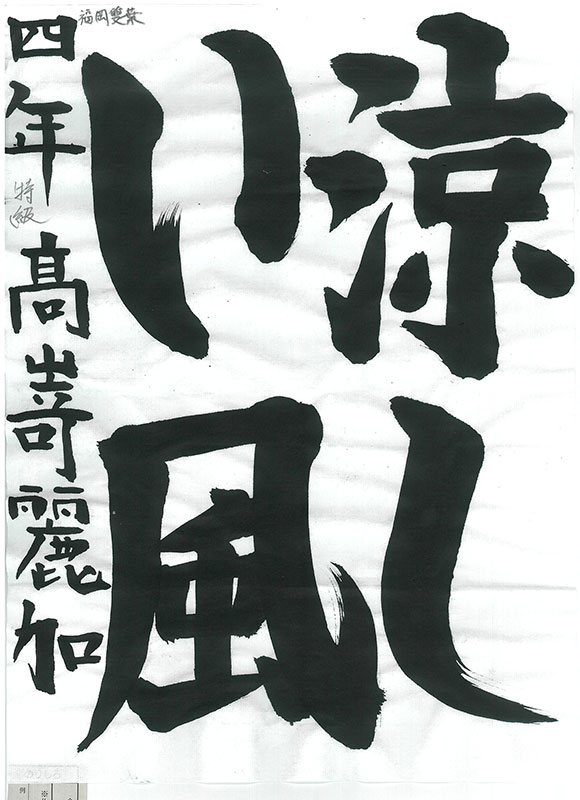 涼し
い風
四年 髙嵜麗加
特級
福岡雙葉
例